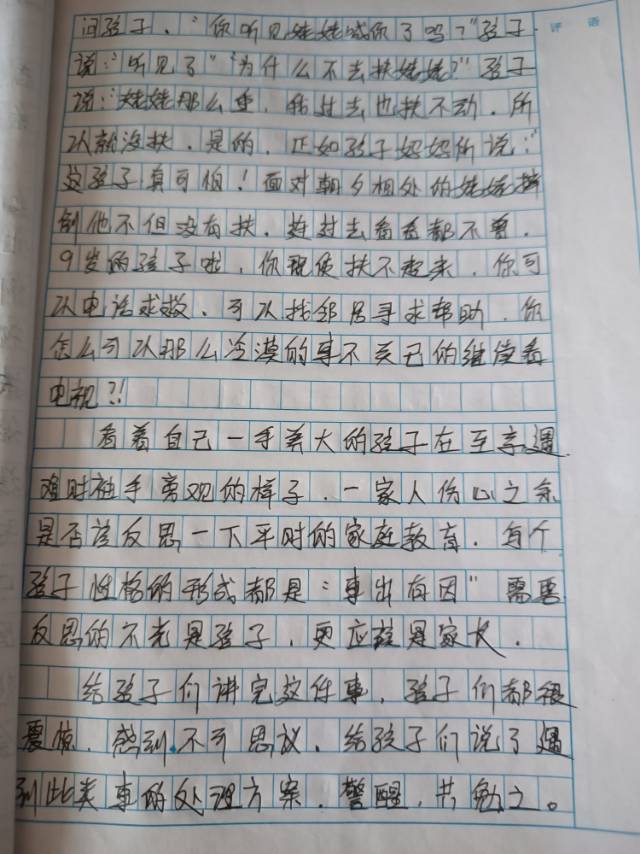 评 语
问孩子，“你听见姥姥喊你了吗？”孩子
说：“听见了”“为什么不去扶姥姥？”孩子
说：“姥姥那么重，我过去也扶不动，所
以就没扶．是的．正如孩子妈妈所说：“
这孩子真可怕！面对朝夕相处的姥姥摔
倒他不但没有扶．连过去看看都不曾．
9岁的孩子啦，你既使扶不起来．你可
以电话求救、可以找邻居寻求帮助．你
怎么可以那么冷漠的事不关己的继续看
电视？！
看着自己一手养大的孩子在至亲遇
难时袖手旁观的样子．一家人伤心之余
是否该反思一下平时的家庭教育．每个
孩子性格的形成都是“事出有因”需要
反思的不光是孩子，更应该是家长．
给孩子们讲完这件事，孩子们都很
震惊．感到不可思议．给孩子们说了遇
到此类事的处理方案．警醒，共勉之。